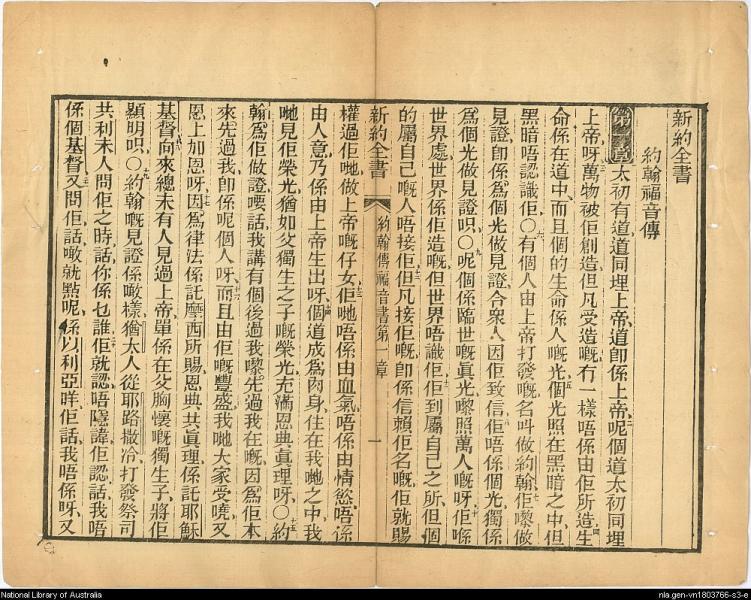 新約全書
約翰福音傳
第一章 太初有道道同埋上帝道卽係上帝呢個道太初同埋
上帝呀萬物被佢創造但凡受造嘅有一樣唔係由佢所造生
命係在道中而且個的生命係人嘅光個光照在黑暗之中但
黑暗唔認識佢〇有個人由上帝打發嘅名叫做約翰佢嚟做
見證卽係爲個光做見證令衆人因佢致信佢唔係個光獨係
爲個光做見證呮〇呢個係臨世嘅眞光嚟照萬人嘅呀佢喺
世界處世界係佢造嘅但世界唔識佢佢到屬自己之所但個
的屬自己嘅人唔接佢但凡接佢嘅卽係信賴佢名嘅佢就賜
新約全書
約翰傳福音書第一章
一
權過佢哋做上帝嘅仔女佢哋唔係由血氣唔係由情慾唔係
由人意乃係由上帝生出呀個道成爲肉身住在我哋之中我
哋見佢榮光猶如父獨生之子嘅榮光充滿恩典眞理呀〇約
翰爲佢做證嘜話我講有個後過我嚟先過我在嘅因爲佢本
來先過我卽係呢個人呀而且由佢嘅豐盛我哋大家受嘵又
恩上加恩呀因爲律法係託摩西所賜恩典共眞理係託耶穌
基督向來總未有人見過上帝單係在父胸懷嘅獨生子將佢
顯明呮〇約翰嘅見證係噉樣猶太人從耶路撒冷打發祭司
共利未人問佢之時話你係乜誰佢就認唔隱諱佢認話我唔
係個基督又問佢話噉就點呢係以利亞咩佢話我唔係呀又
National Library of Australia
nla.gen-vn1803766-s3-e